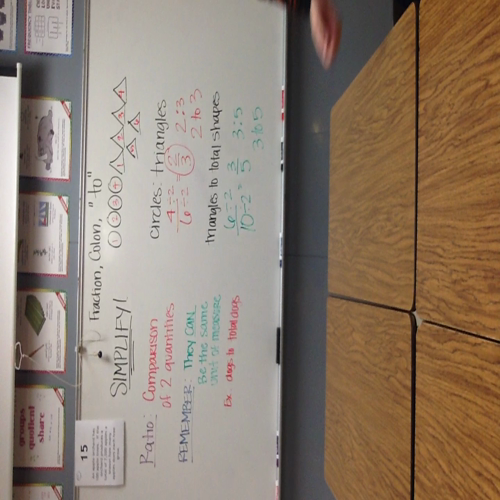 Fraction, Colon, "to"
SIMPLIFY!
1 2 3 4
1 2 3 4
5 6
Ratio: Comparison
of 2 quantities
REMEMBER: They CAN
Be the same
unit of measure
Ex. dogs to total dogs
Circles: triangles
4÷2 = 2 2:3
6÷2 3 2 to 3
triangles to total shapes
6÷2 = 3 3:5
10÷2 5 3 to 5
15
groups
quotient
share